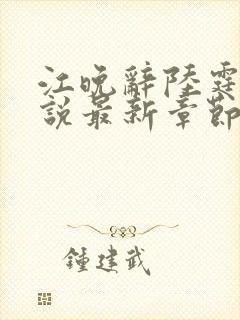 江晚辭陸霆
說最新章節
鍾建武